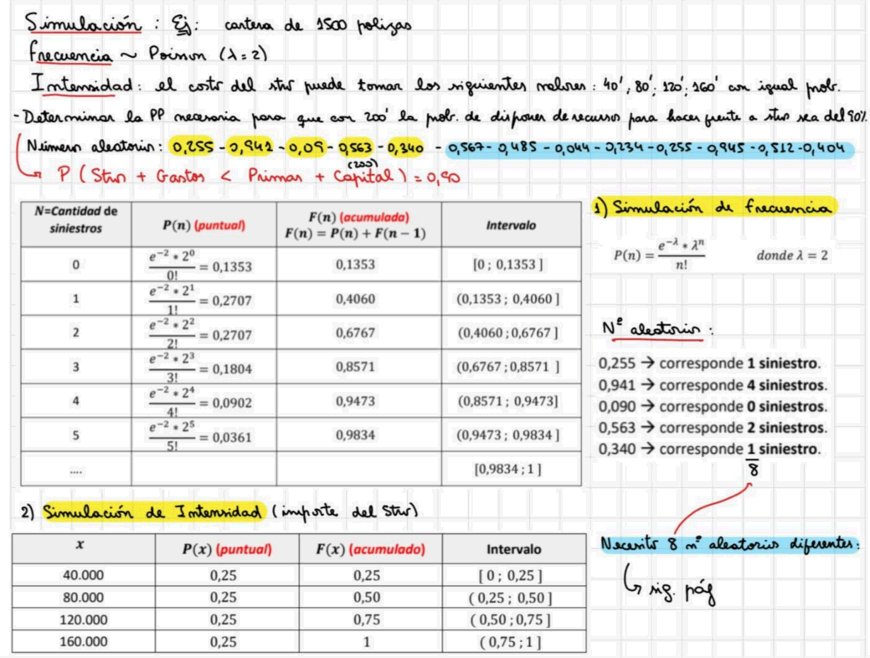 Simulación : Ej: cartera de 1500 polizas
Frecuencia ~ Poisson (λ=2)
Intensidad: el costo del stro puede tomar los siguientes valores: 40', 80', 120', 160' con igual prob.
- Determinar la PP necesaria para que con 200' la prob. de disponer de recursos para hacer frente a stros sea del 90%
Número aleatorio: 0,255 - 0,941 - 0,09 - 0,563 - 0,340 - 0,567 - 0,485 - 0,044 - 0,234 - 0,255 - 0,945 - 0,512 - 0,404
(200)
P ( Stros + Gastos < Primas + Capital ) = 0,90
1) Simulación de frecuencia
N=Cantidad de siniestros P(n) (puntual) F(n) (acumulada) F(n) = P(n) + F(n − 1) Intervalo
0 e^−2 * 2^0 / 0! = 0,1353 0,1353 [0 ; 0,1353 ]
1 e^−2 * 2^1 / 1! = 0,2707 0,4060 (0,1353 ; 0,4060 ]
2 e^−2 * 2^2 / 2! = 0,2707 0,6767 (0,4060 ; 0,6767 ]
3 e^−2 * 2^3 / 3! = 0,1804 0,8571 (0,6767 ; 0,8571 ]
4 e^−2 * 2^4 / 4! = 0,0902 0,9473 (0,8571 ; 0,9473]
5 e^−2 * 2^5 / 5! = 0,0361 0,9834 (0,9473 ; 0,9834 ]
.... [0,9834 ; 1 ]
P(n) = e^−λ * λ^n / n! donde λ = 2
Nº aleatorio :
0,255 → corresponde 1 siniestro.
0,941 → corresponde 4 siniestros.
0,090 → corresponde 0 siniestros.
0,563 → corresponde 2 siniestros.
0,340 → corresponde 1 siniestro.
8
2) Simulación de Intensidad (importe del Stro)
x P(x) (puntual) F(x) (acumulado) Intervalo
40.000 0,25 0,25 [ 0 ; 0,25 ]
80.000 0,25 0,50 ( 0,25 ; 0,50 ]
120.000 0,25 0,75 ( 0,50 ; 0,75 ]
160.000 0,25 1 ( 0,75 ; 1 ]
Necesito 8 nº aleatorios diferentes:
sig. pág